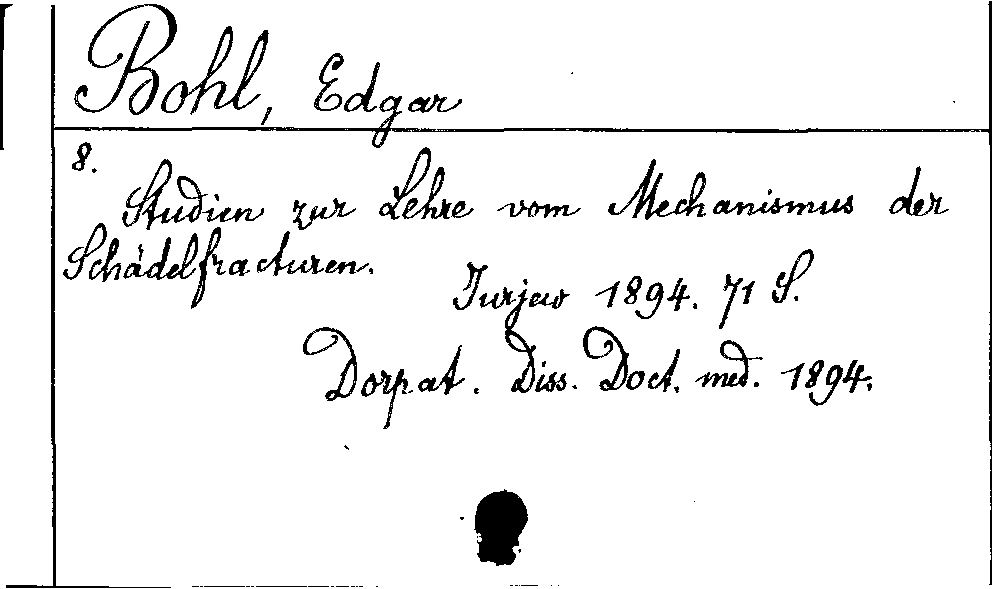 Bohl, Edgar
8.
Studien zur Lehre vom Mechanismus der
Schädelfracturen.
Jurjew 1894. 71 S.
Dorpat. Diss. Doct. med. 1894.